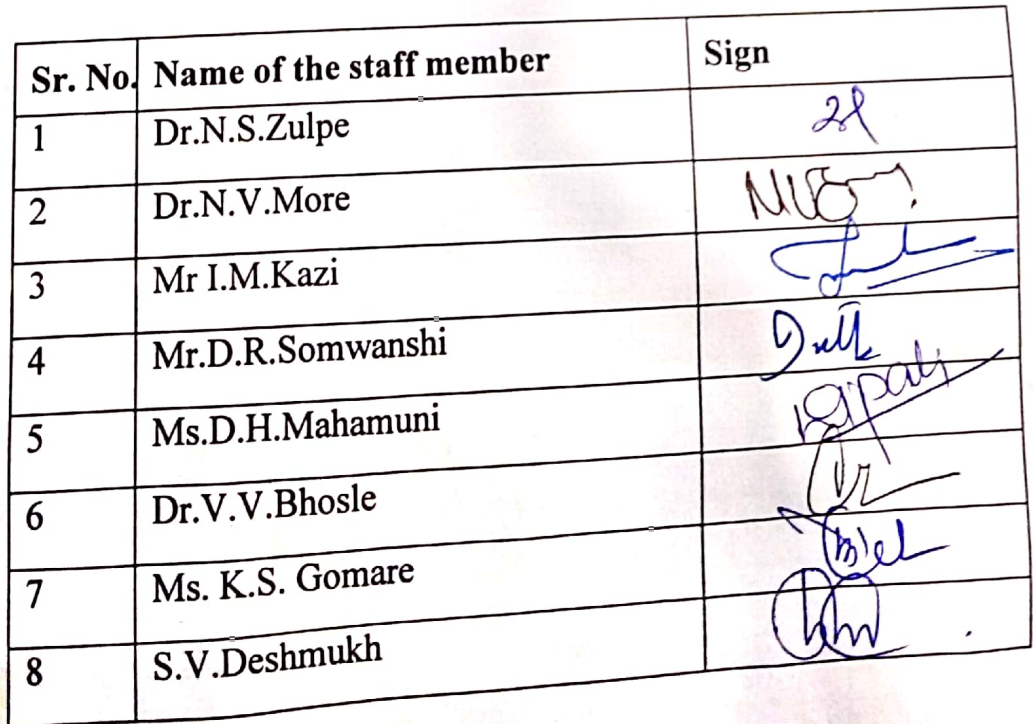 Sr. No. Name of the staff member Sign
1 Dr.N.S.Zulpe
2 Dr.N.V.More
3 Mr I.M.Kazi
4 Mr.D.R.Somwanshi
5 Ms.D.H.Mahamuni
6 Dr.V.V.Bhosle
7 Ms. K.S. Gomare
8 S.V.Deshmukh